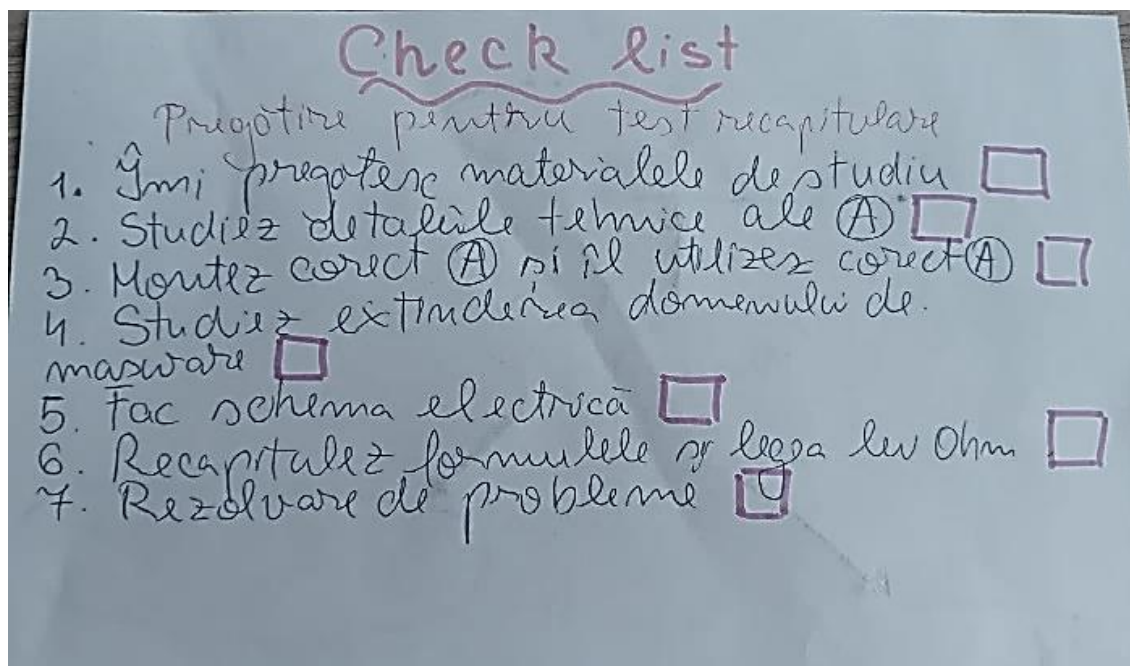 Check list
Pregătire pentru test recapitulare
1. Îmi pregătesc materialele de studiu
2. Studiez detaliile tehnice ale A
3. Montez corect A și îl utilizez corect A
4. Studiez extinderea domeniului de.
masurare
5. Fac schema electrică
6. Recapitulez formulele și legea lui Ohm
7. Rezolvare de probleme